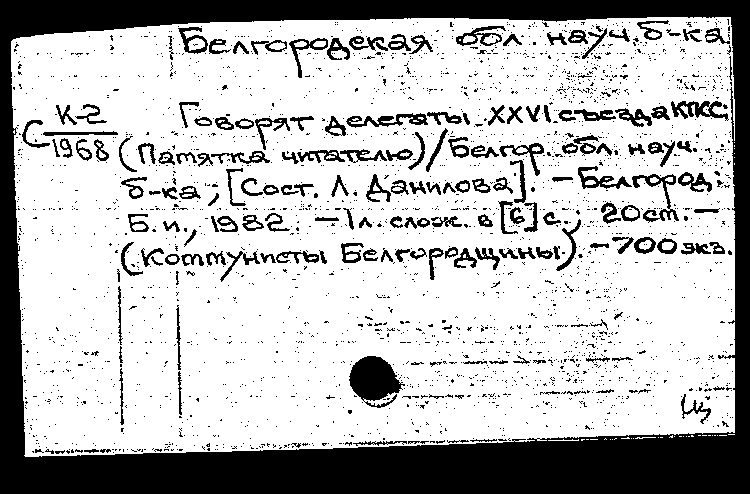 Белгородская обл. науч. б-ка
С К-2
1968
Говорят делегаты XXVI съезда КПСС:
(Памятка читателю)/Белгор. обл. науч.
б-ка; [Сост. Л. Данилова]. – Белгород:
Б. и., 1982. – 1 л. слож. в [6] с.; 20 см. –
(Коммунисты Белгородщины). – 700 экз.